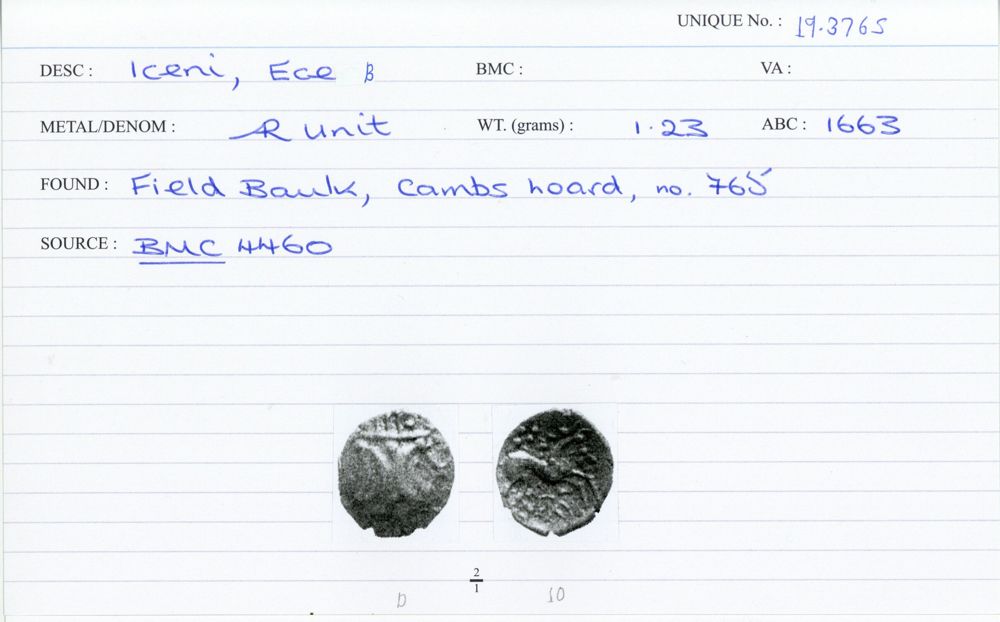 UNIQUE No. : 19.3765
DESC : Iceni, Ece B BMC : VA :
METAL/DENOM : AR unit WT. (grams) : 1.23 ABC : 1663
FOUND : Field Baulk, Cambs hoard, no. 765
SOURCE : BMC 4460
2
1
D 10